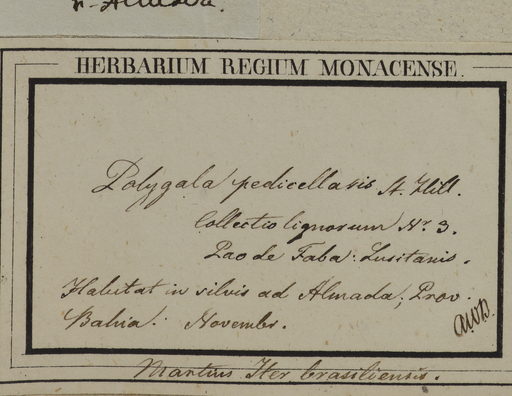 HERBARIUM REGIUM MONACENSE.
Polygala pedicellaris St. Hill.
Collectio lignorum Nr. 3.
Pao de Faba. Lusitanis.
Habitat in silvis ad Almada, Prov.
Bahia. Novembr.
Martius Iter brasiliensis.